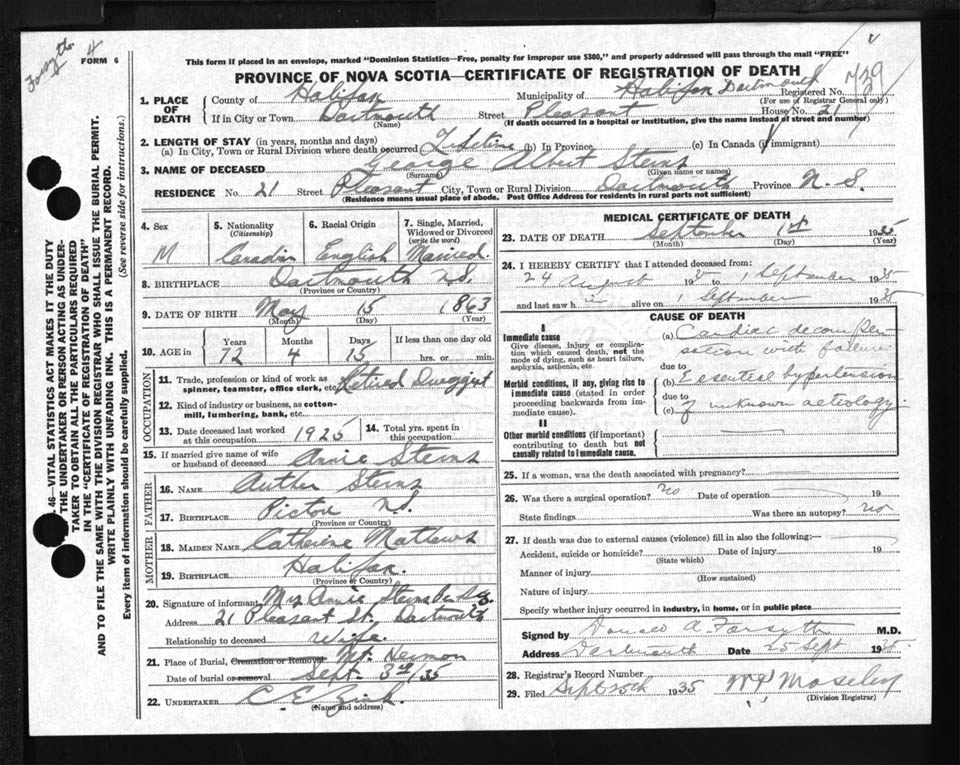 Forsyth
4
FORM 6
This form if placed in an envelope, marked "Dominion Statistics—Free, penalty for improper use $300," and properly addressed will pass through the mail "FREE"
PROVINCE OF NOVA SCOTIA—CERTIFICATE OF REGISTRATION OF DEATH
739
1. PLACE OF DEATH
County of Halifax Municipality of Halifax Dartmouth Registered No.
(For use of Registrar General only)
If in City or Town Dartmouth Street Pleasant House No. 21
(Name) (If death occurred in a hospital or institution, give the name instead of street and number)
2. LENGTH OF STAY (in years, months and days)
(a) In City, Town or Rural Division where death occurred Lifetime (b) In Province (c) In Canada (if immigrant)
3. NAME OF DECEASED George Albert Sterns
(Surname) (Given name or names)
RESIDENCE No 21 Street Pleasant City, Town or Rural Division Dartmouth Province N.S.
(Residence means usual place of abode. Post Office Address for residents in rural parts not sufficient)
4. Sex M
5. Nationality (Citizenship) Canadian
6. Racial Origin English
7. Single, Married, Widowed or Divorced (write the word) Married.
8. BIRTHPLACE Dartmouth N.S.
(Province or Country)
9. DATE OF BIRTH May 15 1863
(Month) (Day) (Year)
10. AGE in Years 72 Months 4 Days 15 If less than one day old
hrs. or min.
OCCUPATION
11. Trade, profession or kind of work as spinner, teamster, office clerk, etc. Retired Druggist
12. Kind of industry or business, as cotton-mill, lumbering, bank, etc.
13. Date deceased last worked at this occupation 1925
14. Total yrs. spent in this occupation
15. If married give name of wife or husband of deceased Annie Sterns
FATHER
16. NAME Auther Sterns
17. BIRTHPLACE Pictou N.S.
(Province or Country)
MOTHER
18. MAIDEN NAME Catherine Mathews
19. BIRTHPLACE Halifax.
(Province or Country)
20. Signature of informant Mrs Annie Sterns
Address 21 Pleasant St. Dartmouth
Relationship to deceased Wife
21. Place of Burial, Cremation or Removal Mt. Hermon
Date of burial or removal Sept. 3rd/35
22. UNDERTAKER C E Zink
(Name and address)
MEDICAL CERTIFICATE OF DEATH
23. DATE OF DEATH September 1st 1935
(Month) (Day) (Year)
24. I HEREBY CERTIFY that I attended deceased from:
24 August 1935 to 1 September 1935
and last saw h im alive on 1 September 1935
CAUSE OF DEATH
I
Immediate cause
Give disease, injury or complication which caused death, not the mode of dying, such as heart failure, asphyxia, asthenia, etc.
(a) Cardiac decompensation with failure
due to
Morbid conditions, if any, giving rise to immediate cause (stated in order proceeding backwards from immediate cause).
(b) Essential hypertension
due to
(c) of unknown aetiology.
II
Other morbid conditions (if important) contributing to death but not causally related to immediate cause.
25. If a woman, was the death associated with pregnancy?
26. Was there a surgical operation? no Date of operation 19
State findings Was there an autopsy? no
27. If death was due to external causes (violence) fill in also the following:—
Accident, suicide or homicide? Date of injury 19
(State which)
Manner of injury
(How sustained)
Nature of injury
Specify whether injury occurred in industry, in home, or in public place
Signed by Donald A. Forsyth M.D.
Address Dartmouth Date 25 Sept 1935
28. Registrar's Record Number
29. Filed Sept 25th 1935 Moseley
(Division Registrar)
46—VITAL STATISTICS ACT MAKES IT THE DUTY
THE UNDERTAKER OR PERSON ACTING AS UNDER-
TAKER TO OBTAIN ALL THE PARTICULARS REQUIRED
IN THE "CERTIFICATE OF REGISTRATION OF DEATH"
AND TO FILE THE SAME WITH THE DIVISION REGISTRAR WHO SHALL ISSUE THE BURIAL PERMIT.
WRITE PLAINLY WITH UNFADING INK. THIS IS A PERMANENT RECORD.
Every item of information should be carefully supplied. (See reverse side for instructions.)